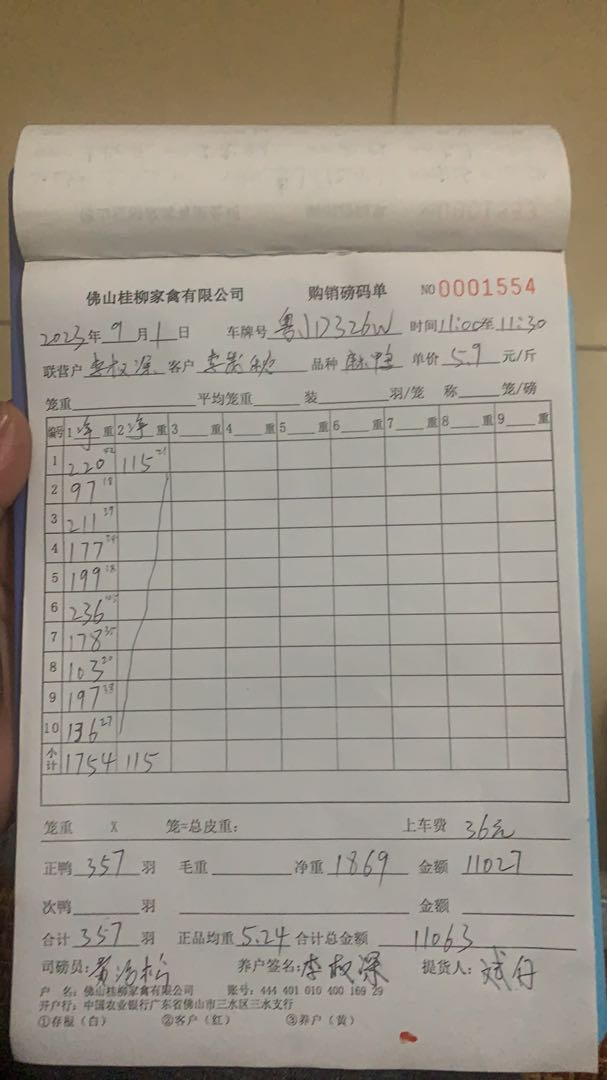 佛山桂柳家禽有限公司 购销磅码单 NO 0001554
2023年9月1日 车牌号 粤 D326W 时间11:00至11:30
联营户 李权深 客户 品种 麻鸭 单价 5.9 元/斤
笼重 平均笼重 装 羽/笼 称 笼/磅
编号 1 净 重 2 净 重 3 重 4 重 5 重 6 重 7 重 8 重 9 重
1 220 115
2 97 18
3 211 39
4 177
5 199
6 236
7 178 35
8 103 20
9 197
10 136 27
小计 1754 115
笼重 X 笼=总皮重： 上车费 36元
正鸭 357 羽 毛重 净重 1869 金额 11027
次鸭 羽 金额
合计 357 羽 正品均重 5.24 合计总金额 11063
司磅员： 养户签名：李权深 提货人：
户 名：佛山桂柳家禽有限公司 账号：444 401 010 400 169 29
开户行：中国农业银行广东省佛山市三水区三水支行
①存根（白） ②客户（红） ③养户（黄）